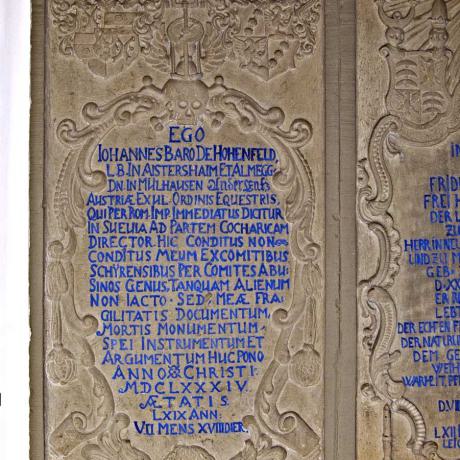 EGO
IOHANNES BARO DE HOHENFELD,
L.B. IN AISTERSHAIM ET ALMEGG.
DN. IN MÜLHAUSEN
AUSTRIÆ EXUL. ORDINIS EQUESTRIS,
QUI PER ROM. IMP. IMMEDIATUS DICITUR
IN SUEUIA AD PARTEM COCHARICAM
DIRECTOR. HIC CONDITUS NON
CONDITUS MEUM EX COMITIBUS
SCHYRENSIBUS PER COMITES ABU-
SINOS GENUS, TANQUAM ALIENUM
NON IACTO. SED. MEÆ FRA-
GILITATIS DOCUMENTUM,
MORTIS MONUMENTUM
SPEI INSTRUMENTUM ET
ARGUMENTUM HUC PONO
ANNO CHRISTI
MDCLXXXIV.
ÆTATIS
LXIX ANN:
VII MENS XVIII DIER.
FRID
FREI H
DER L
ZU
HERR IN
UND ZU M
GEB
D.XX
ER
LEBT
DER ECHTEN F
DER NATUR U
DEM GE
WEIH
WARHEIT
D.VII
LXII